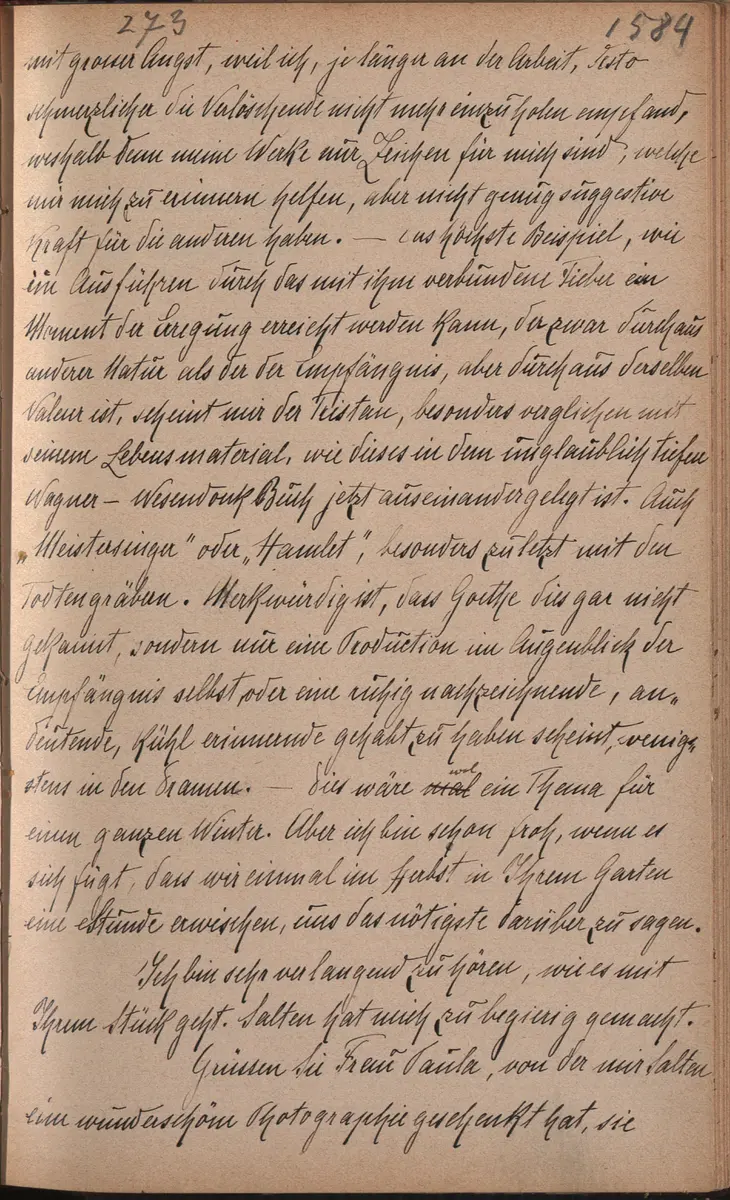 273 1584
mit grosser Angst, weil ich, je länger an der Arbeit, desto
schmerzlicher die Verlöschende nicht mehr einzuholen empfand,
weshalb denn meine Werke nur Zeichen für mich sind, welche
mir mich zu erinnern helfen, aber nicht genug suggestive
Kraft für die anderen haben. — das höchste Beispiel, wie
im Ausführen durch das mit ihm verbundene Fieber ein
Moment der Erregung erreicht werden kann, der zwar durchaus
anderer Natur als der der Empfängnis, aber durchaus derselben
Valeur ist, scheint mir der Tristan, besonders verglichen mit
seinem Lebensmaterial, wie dieses in dem unglaublich tiefen
Wagner – Wesendonk Buch jetzt auseinandergelegt ist. Auch
„Meistersinger" oder „Hamlet", besonders zuletzt mit den
Todtengräbern. Merkwürdig ist, dass Goethe dies gar nicht
gekannt, sondern nur eine Production im Augenblick der
Empfängnis selbst, oder eine ruhig nachzeichnende, an„
deutende, kühl erinnernde gehabt zu haben scheint, wenig„
stens in den Dramen. — Dies wäre wol ein Thema für
einen ganzen Winter. Aber ich bin schon froh, wenn es
sich fügt, dass wir einmal im Herbst in Ihrem Garten
eine Stunde erwischen, uns das nötigste darüber zu sagen.
Ich bin sehr verlangend zu hören, wie es mit
Ihrem Stück geht. Salten hat mich zu begierig gemacht.
Grüssen Sie Frau Paula, von der mir Salten
eine wunderschöne Photographie geschenkt hat, sie